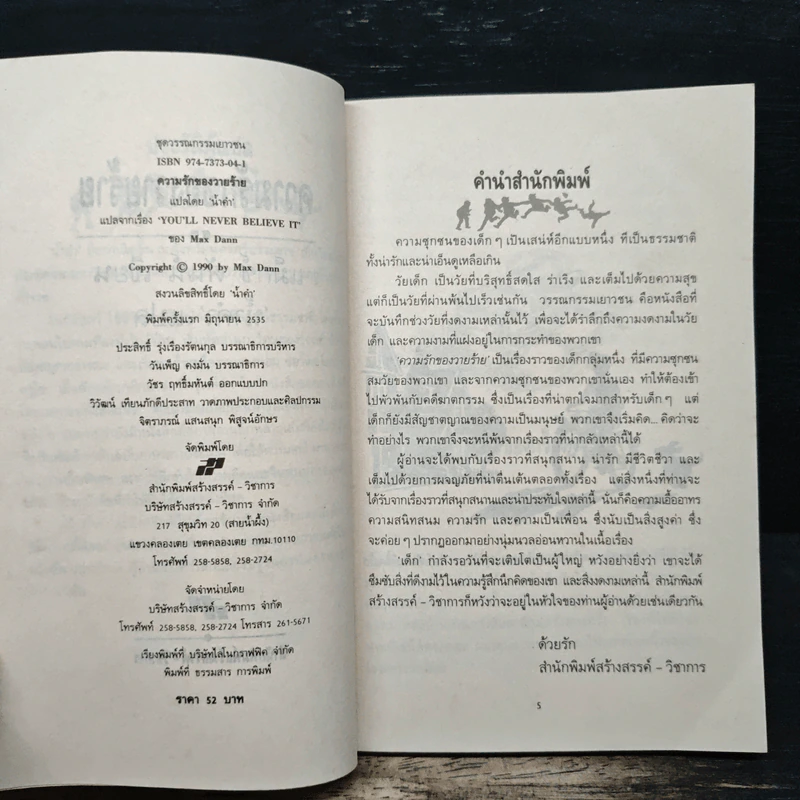 ชุดวรรณกรรมเยาวชน
ISBN 974-7373-04-1
ความรักของวายร้าย
แปลโดย 'น้ำคำ'
แปลจากเรื่อง 'YOU'LL NEVER BELIEVE IT'
ของ Max Dann
Copyright © 1990 by Max Dann
สงวนลิขสิทธิ์โดย 'น้ำคำ'
พิมพ์ครั้งแรก มิถุนายน 2535
ประสิทธิ์ รุ่งเรืองรัตนกุล บรรณาธิการบริหาร
วันเพ็ญ คงมั่น บรรณาธิการ
วัชร ฤทธิ์มหันต์ ออกแบบปก
วิวัฒน์ เทียนภักดีประสาท วาดภาพประกอบและศิลปกรรม
จิตราภรณ์ แสนสนุก พิสูจน์อักษร
จัดพิมพ์โดย
สำนักพิมพ์สร้างสรรค์ – วิชาการ
บริษัทสร้างสรรค์ – วิชาการ จำกัด
217 สุขุมวิท 20 (สายน้ำผึ้ง)
แขวงคลองเตย เขตคลองเตย กทม.10110
โทรศัพท์ 258-5858, 258-2724
จัดจำหน่ายโดย
บริษัทสร้างสรรค์ – วิชาการ จำกัด
โทรศัพท์ 258-5858, 258-2724 โทรสาร 261-5671
เรียงพิมพ์ที่ บริษัทไลโนกราฟฟิค จำกัด
พิมพ์ที่ ธรรมสาร การพิมพ์
ราคา 52 บาท
คำนำสำนักพิมพ์
ความซุกซนของเด็ก ๆ เป็นเสน่ห์อีกแบบหนึ่ง ที่เป็นธรรมชาติ
ทั้งน่ารักและน่าเอ็นดูเหลือเกิน
วัยเด็ก เป็นวัยที่บริสุทธิ์สดใส ร่าเริง และเต็มไปด้วยความสุข
แต่ก็เป็นวัยที่ผ่านพ้นไปเร็วเช่นกัน วรรณกรรมเยาวชน คือหนังสือที่
จะบันทึกช่วงวัยที่งดงามเหล่านั้นไว้ เพื่อจะได้รำลึกถึงความงดงามในวัย
เด็ก และความงามที่แฝงอยู่ในการกระทำของพวกเขา
'ความรักของวายร้าย' เป็นเรื่องราวของเด็กกลุ่มหนึ่ง ที่มีความซุกซน
สมวัยของพวกเขา และจากความซุกซนของพวกเขานั่นเอง ทำให้ต้องเข้า
ไปพัวพันกับคดีฆาตกรรม ซึ่งเป็นเรื่องที่น่าตกใจมากสำหรับเด็ก ๆ แต่
เด็กก็ยังมีสัญชาตญาณของความเป็นมนุษย์ พวกเขาจึงเริ่มคิด... คิดว่าจะ
ทำอย่างไร พวกเขาจึงจะหนีพ้นจากเรื่องราวที่น่ากลัวเหล่านี้ได้
ผู้อ่านจะได้พบกับเรื่องราวที่สนุกสนาน น่ารัก มีชีวิตชีวา และ
เต็มไปด้วยการผจญภัยที่น่าตื่นเต้นตลอดทั้งเรื่อง แต่สิ่งหนึ่งที่ท่านจะ
ได้รับจากเรื่องราวที่สนุกสนานและน่าประทับใจเหล่านี้ นั่นก็คือความเอื้ออาทร
ความสนิทสนม ความรัก และความเป็นเพื่อน ซึ่งนับเป็นสิ่งสูงค่า ซึ่ง
จะค่อย ๆ ปรากฏออกมาอย่างนุ่มนวลอ่อนหวานในเนื้อเรื่อง
'เด็ก' กำลังรอวันที่จะเติบโตเป็นผู้ใหญ่ หวังอย่างยิ่งว่า เขาจะได้
ซึมซับสิ่งที่ดีงามไว้ในความรู้สึกนึกคิดของเขา และสิ่งงดงามเหล่านี้ สำนักพิมพ์
สร้างสรรค์ – วิชาการก็หวังว่าจะอยู่ในหัวใจของท่านผู้อ่านด้วยเช่นเดียวกัน
ด้วยรัก
สำนักพิมพ์สร้างสรรค์ – วิชาการ
5